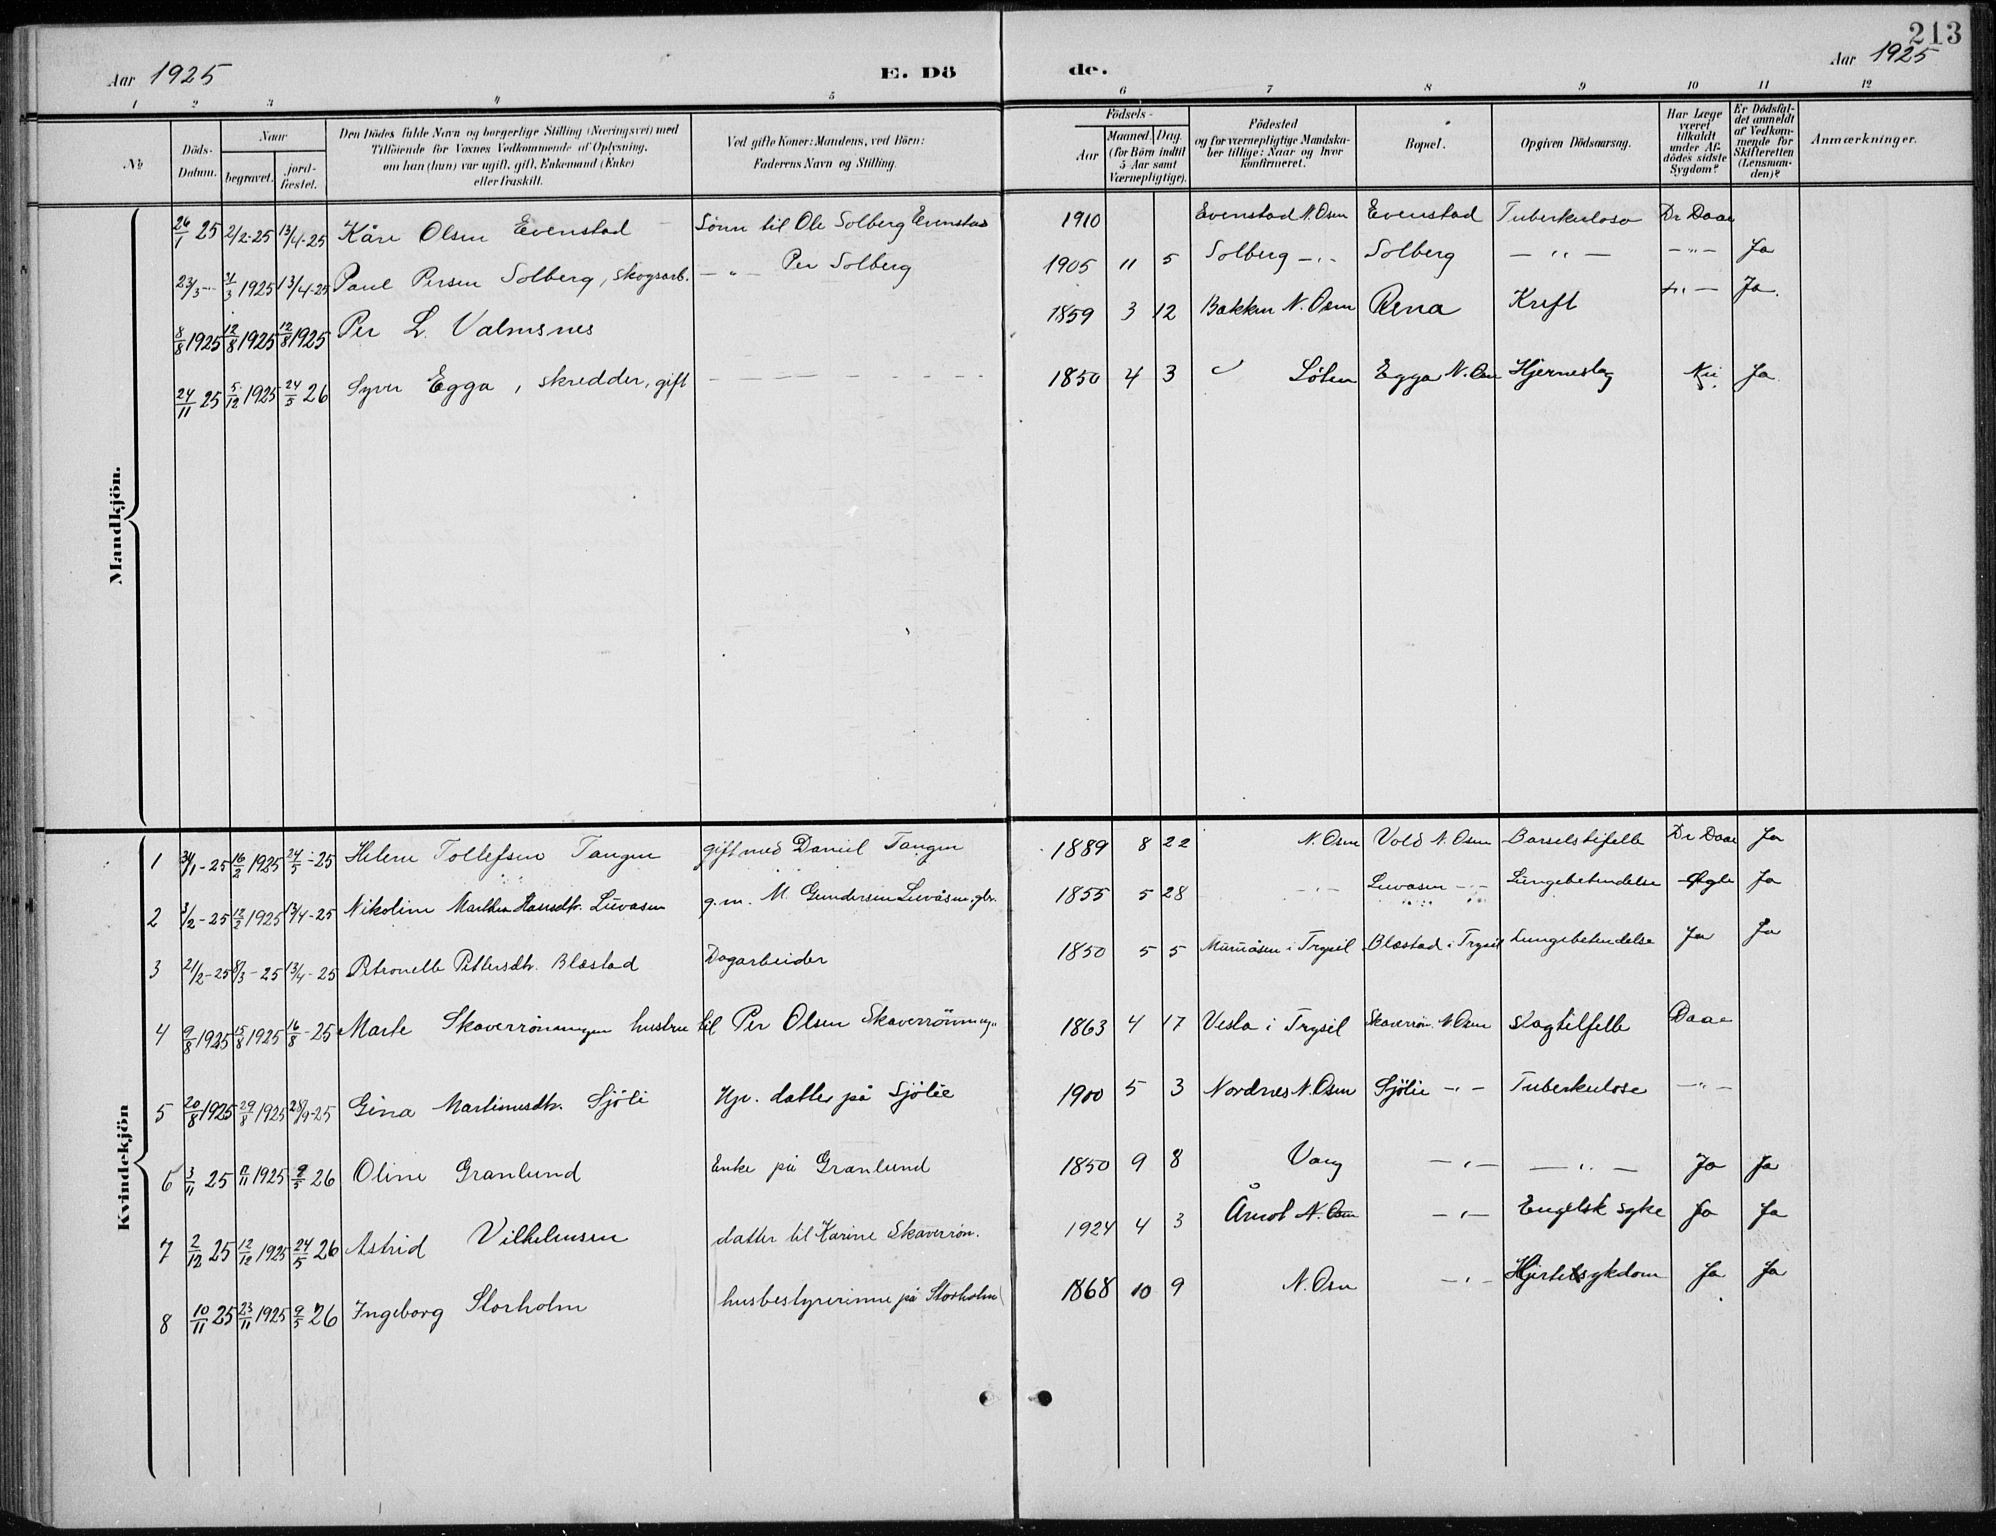 213
Aar 1925
E. Dö
de.
Aar 1925
1 2 3 4 5 6 7 8 9 10 11 12
№
Döds-Datum.
Naar
begravet.
jord-fæstet.
Den Dödes fulde Navn og borgerlige Stilling (Næringsvei) med
Tilföiende for Voxnes Vedkommende af Oplysning,
om han (hun) var ugift, gift, Enkemand (Enke)
eller fraskilt.
Ved gifte Koner: Mandens, ved Börn:
Faderens Navn og Stilling.
Födsels-
Aar
Maaned. Dag.
(for Börn indtil
5 Aar samt
Værnepligtige).
Födested
og for værnepligtige Mandska-
ber tillige: Naar og hvor
konfirmeret.
Bopæl.
Opgiven Dödsaarsag.
Har Læge
været
tilkaldt
under Af-
dödes sidste
Sygdom?
Er Dödsfal-
det anmeldt
af Vedkom-
mende for
Skifteretten
(Lensman-
den)?
Anmærkninger.
Mandkjön.
26/1 25 2/2-25 13/4-25 Kåre Olsen Evenstad Sönn til Ole Solberg Evenstad 1910 Evenstad N. Osen Evenstad Tuberkulose Dr Daae
23/3 -- 31/3 1925 13/4-25 Paul Persen Solberg, skogsarb. — " — Per Solberg 1905 11 5 Solberg -"- Solberg — " — — " — Ja
8/8 1925 12/8 1925 12/8 1925 Per L. Valmsnes 1859 3 12 Bakken N. Osen Rena Kreft -"- Ja.
24/11 25 5/12 1925 24/5 26 Syver Egga, skredder, gift — — — 1850 4 3 Löten Egga N. Osen Hjerneslag Nei Ja
Kvindekjön
1 31/1-25 16/2 1925 24/5-25 Helene Tollefsen Tangen gift med Daniel Tangen 1889 8 22 N. Osen Vold N. Osen Barselstifelle Dr Daae Ja
2 3/2-25 12/2 1925 13/4-25 Nikoline Marthea Hansdtr. Luvasen g.m. M. Gundersen Luvåsen, gbr. 1855 5 28 -"- Luvasen -"- Lungebetendelse Ja
3 21/2-25 8/3-25 13/4-25 Petronelle Pettersdtr. Blæstad Dagarbeider 1850 5 5 i Trysil Blæstad i Trysil Lungebetendelse Ja Ja
4 9/8 1925 15/8 1925 16/8-25 Marte Skaverrönningen hustru til Per Olsen Skaverrönning. 1863 4 17 Vesla i Trysil Skaverrön. N. Osen Slagtilfelle Daae
5 20/8 1925 29/8 1925 28/9-25 Gina Martinusdtr. Sjöli Hjv. datter på Sjölie 1900 5 3 Nordnes N. Osen Sjölie -"- Tuberkulose — " —
6 3/11 25 11/11 1925 9/5 26 Oline Granlund Enke på Granlund 1850 9 8 Vang — " — — " — Ja Ja
7 2/12 25 12/12 1925 24/5 26 Astrid Vilhelmsen datter til Karine Skaverrön. 1924 4 3 Åmot N. Osen — " — Engelsk syke Ja Ja
8 10/11 25 23/11 1925 9/5 26 Ingeborg Storholm husbestyrerinne på Storholm 1868 10 9 N. Osen — " — Hjertesykdom Ja Ja